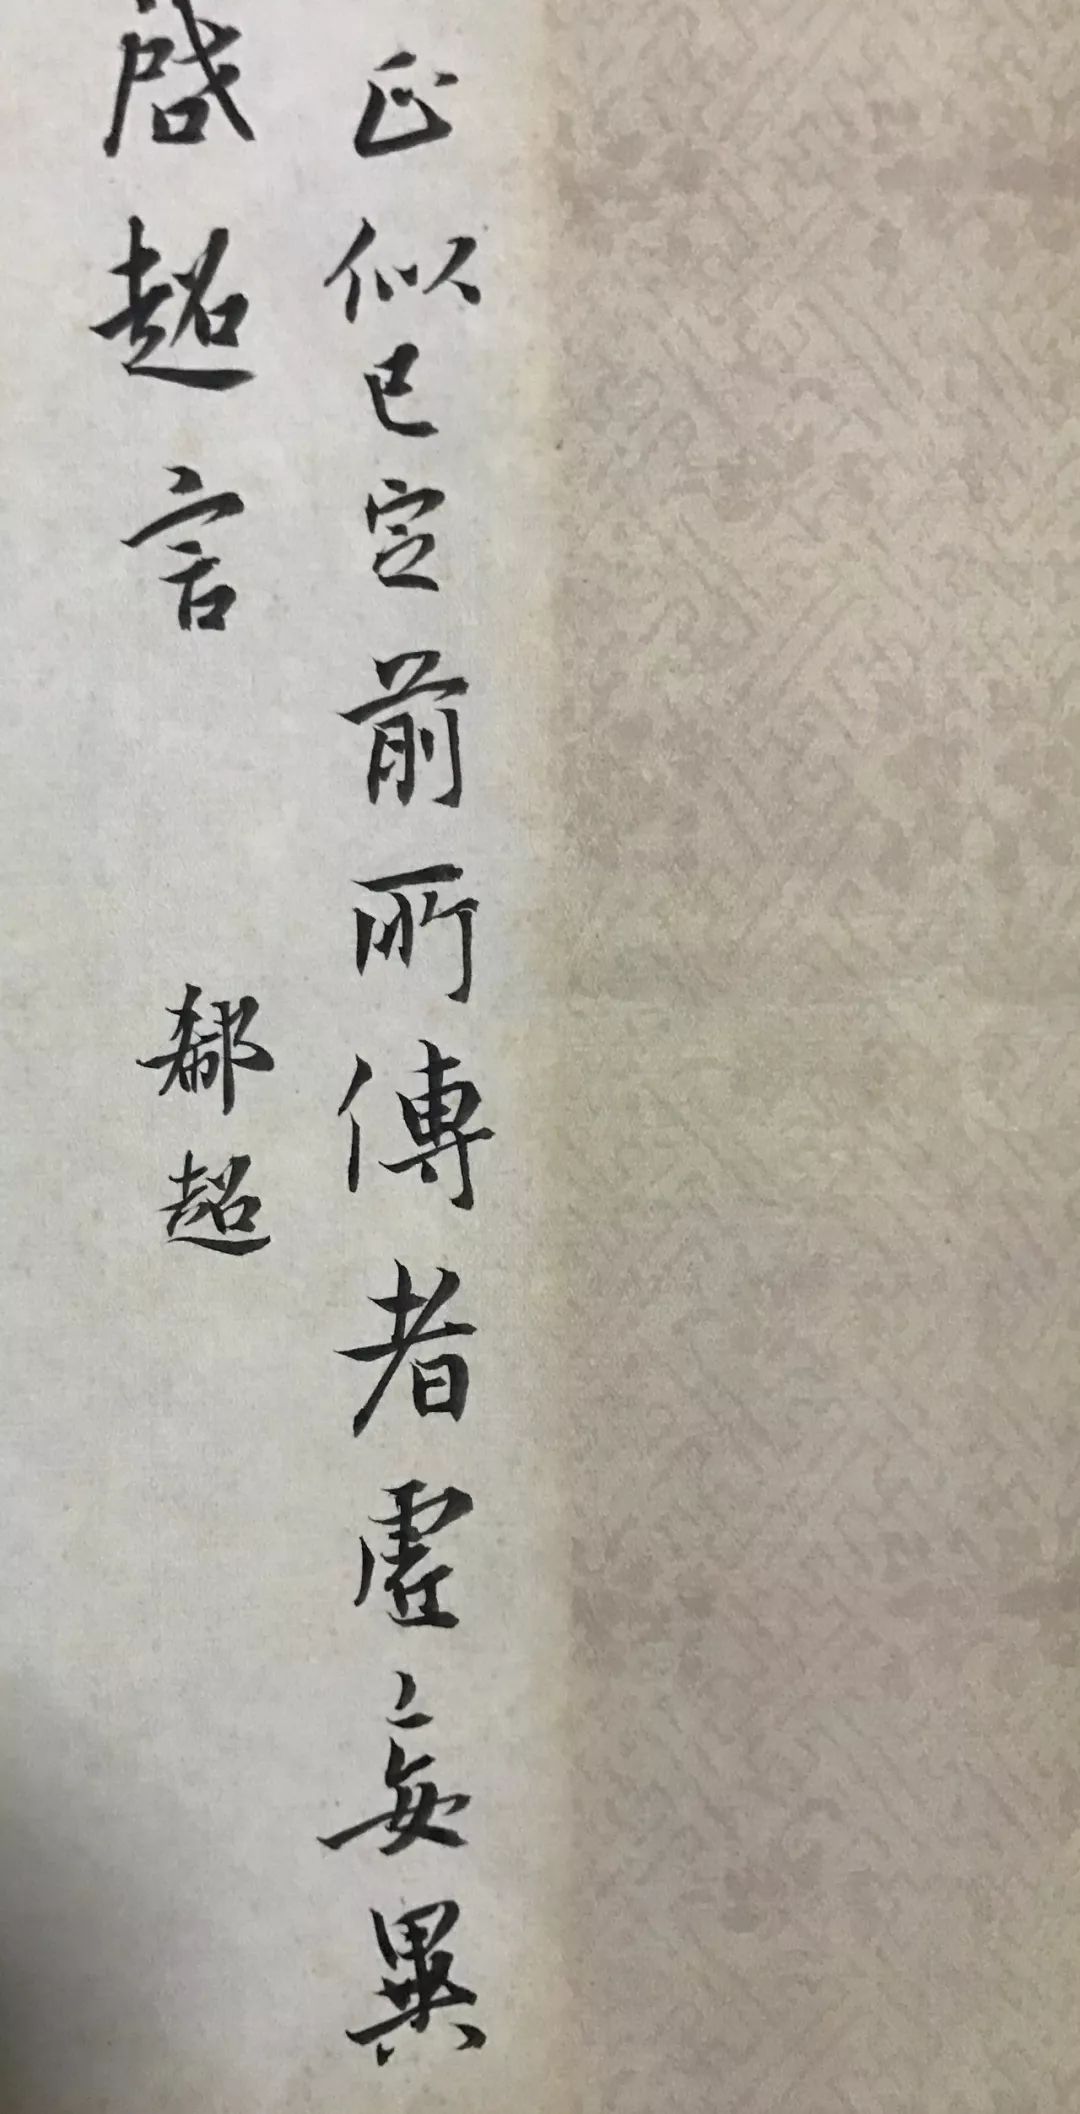 正似已定前所傳者虛妄異
啓超言
郗超